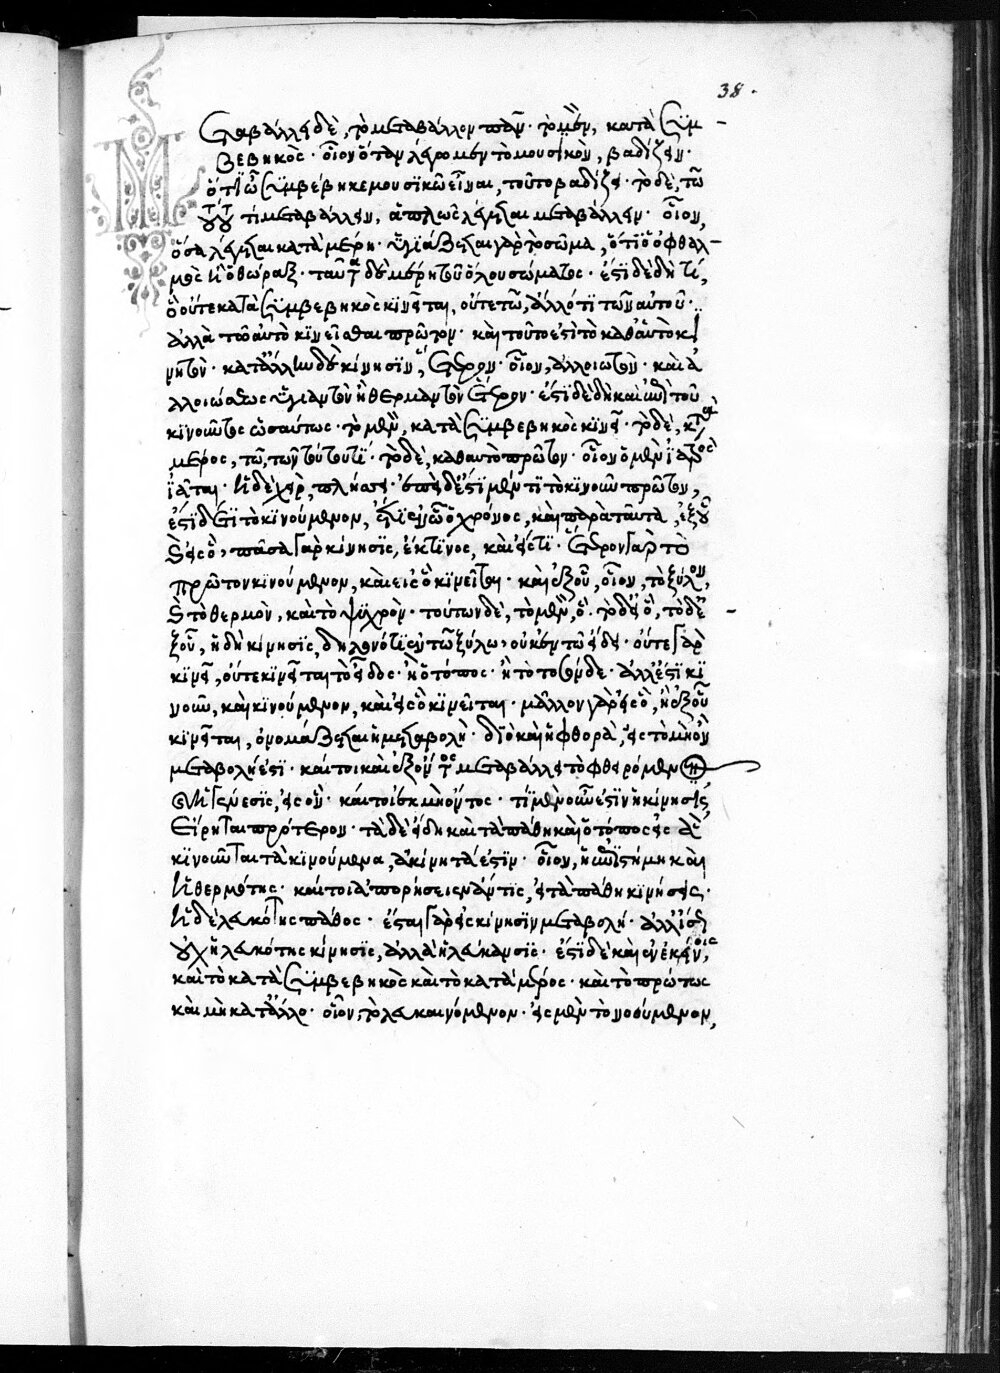 38.
Μεταβάλλει δὲ, τὸ μεταβάλλον πᾶν· τὸ μὲν, κατὰ συμ-
βεβηκὸς· οἷον ὅταν λέγομεν τὸ μουσικὸν, βαδίζειν·
ὅτι ᾧ συμβέβηκε μουσικῶ εἶναι, τοῦτο βαδίζει· τὸ δὲ, τῶ
τούτου τι μεταβάλλειν, ἁπλῶς λέγεται μεταβάλλειν· οἷον,
ὅσα λέγεται κατὰ μέρη· ὑγιάζεται γὰρ τὸ σῶμα, ὅτι ὁ ὀφθαλ-
μὸς ἢ ὁ θώραξ· ταῦτα δὲ μέρη τοῦ ὅλου σώματος· ἔστι δὲ δή τι,
ὃ οὔτε κατὰ συμβεβηκὸς κινεῖται, οὔτε τῶ, ἄλλό τι τῶν αὐτοῦ·
ἀλλὰ τῶ αὐτὸ κινεῖσθαι πρῶτον· καὶ τοῦτό ἐστι τὸ καθ' αὑτὸ κι
νητὸν· κατ' ἄλλην δὲ κίνησιν, ἕτερον· οἷον, ἀλλοιωτὸν· καὶ ἀ
λλοιώσεως ὑγιαντὸν ἢ θερμαντὸν ἕτερον· ἔστι δὲ δὴ καὶ ἐπὶ τοῦ
κινοῦντος ὡσαύτως· τὸ μὲν, κατὰ συμβεβηκὸς κινεῖ· τὸ δὲ, κατὰ
μέρος, τῶ, τῶν τούτου τι· τὸ δὲ, καθ' αὑτὸ πρῶτον· οἷον ὁ μὲν ἰατρὸς
ἰᾶται· ἡ δὲ χεὶρ, πλήττει· ἐπεὶ δέ ἐστι μέν τι τὸ κινοῦν πρῶτον,
ἔστι δέ τι τὸ κινούμενον, ἔτι ἐν ᾧ ὁ χρόνος, καὶ παρὰ ταῦτα, ἐξ οὗ
καὶ εἰς ὃ, πᾶσα γὰρ κίνησις, ἔκ τινος, καὶ εἴς τι· ἕτερον γὰρ τὸ
πρῶτον κινούμενον, καὶ εἰς ὃ κινεῖται· καὶ ἐξ οὗ, οἷον, τὸ ξύλον,
καὶ τὸ θερμὸν, καὶ τὸ ψυχρὸν· τούτων δὲ, τὸ μὲν, ὅ· τὸ δ' εἰς ὅ, τὸ δὲ
ἐξ οὗ, ἡ δὴ κίνησις, δῆλον ὅτι ἐν τῶ ξύλω, οὐκ ἐν τῶ εἴδει· οὔτε γὰρ
κινεῖ, οὔτε κινεῖται τὸ εἶδος· ἢ ὁ τόπος· ἢ τὸ τοσόνδε· ἀλλ' ἔστι κι
νοῦν, καὶ κινούμενον, καὶ εἰς ὃ κινεῖται· μᾶλλον γὰρ εἰς ὃ, ἢ ἐξ οὗ
κινεῖται, ὀνομάζεται ἡ μεταβολὴ· διὸ καὶ ἡ φθορὰ, εἰς τὸ μὴ ὂν
μεταβολή ἐστι· καίτοι καὶ ἐξ ὄντος μεταβάλλει τὸ φθειρόμενον
καὶ ἡ γένεσις, εἰς ὂν· καίτοι ἐκ μὴ ὄντος· τί μὲν οὖν ἐστιν ἡ κίνησις
εἴρηται πρότερον· τὰ δὲ εἴδη καὶ τὰ πάθη καὶ ὁ τόπος εἰς ἃ
κινοῦνται τὰ κινούμενα, ἀκίνητά ἐστιν· οἷον, ἡ ἐπιστήμη καὶ
ἡ θερμότης· καίτοι ἀπορήσειεν ἄν τις, εἰ τὰ πάθη κινήσεις·
ἡ δὲ λευκότης πάθος· ἔσται γὰρ εἰς κίνησιν μεταβολή· ἀλλ' ἴσως
οὐχ ἡ λευκότης κίνησις, ἀλλὰ ἡ λεύκανσις· ἔστι δὲ καὶ ἐν ἐκείνοις,
καὶ τὸ κατὰ συμβεβηκὸς καὶ τὸ κατὰ μέρος· καὶ τὸ πρώτως
καὶ μὴ κατ' ἄλλο· οἷον, τὸ λευκαινόμενον· εἰς μὲν τὸ νοούμενον,